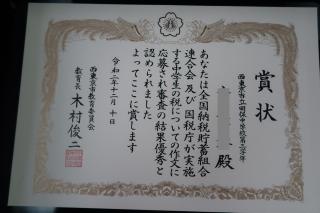 賞状
西東京市立田無第四中学校第三学年
殿
あなたは全国納税貯蓄組合
連合会及び国税庁が実施
する中学生の税についての作文に
応募され審査の結果優秀と
認められました
よってここに賞します
令和二年十二月十日
西東京市教育委員会
教育長 木村俊二